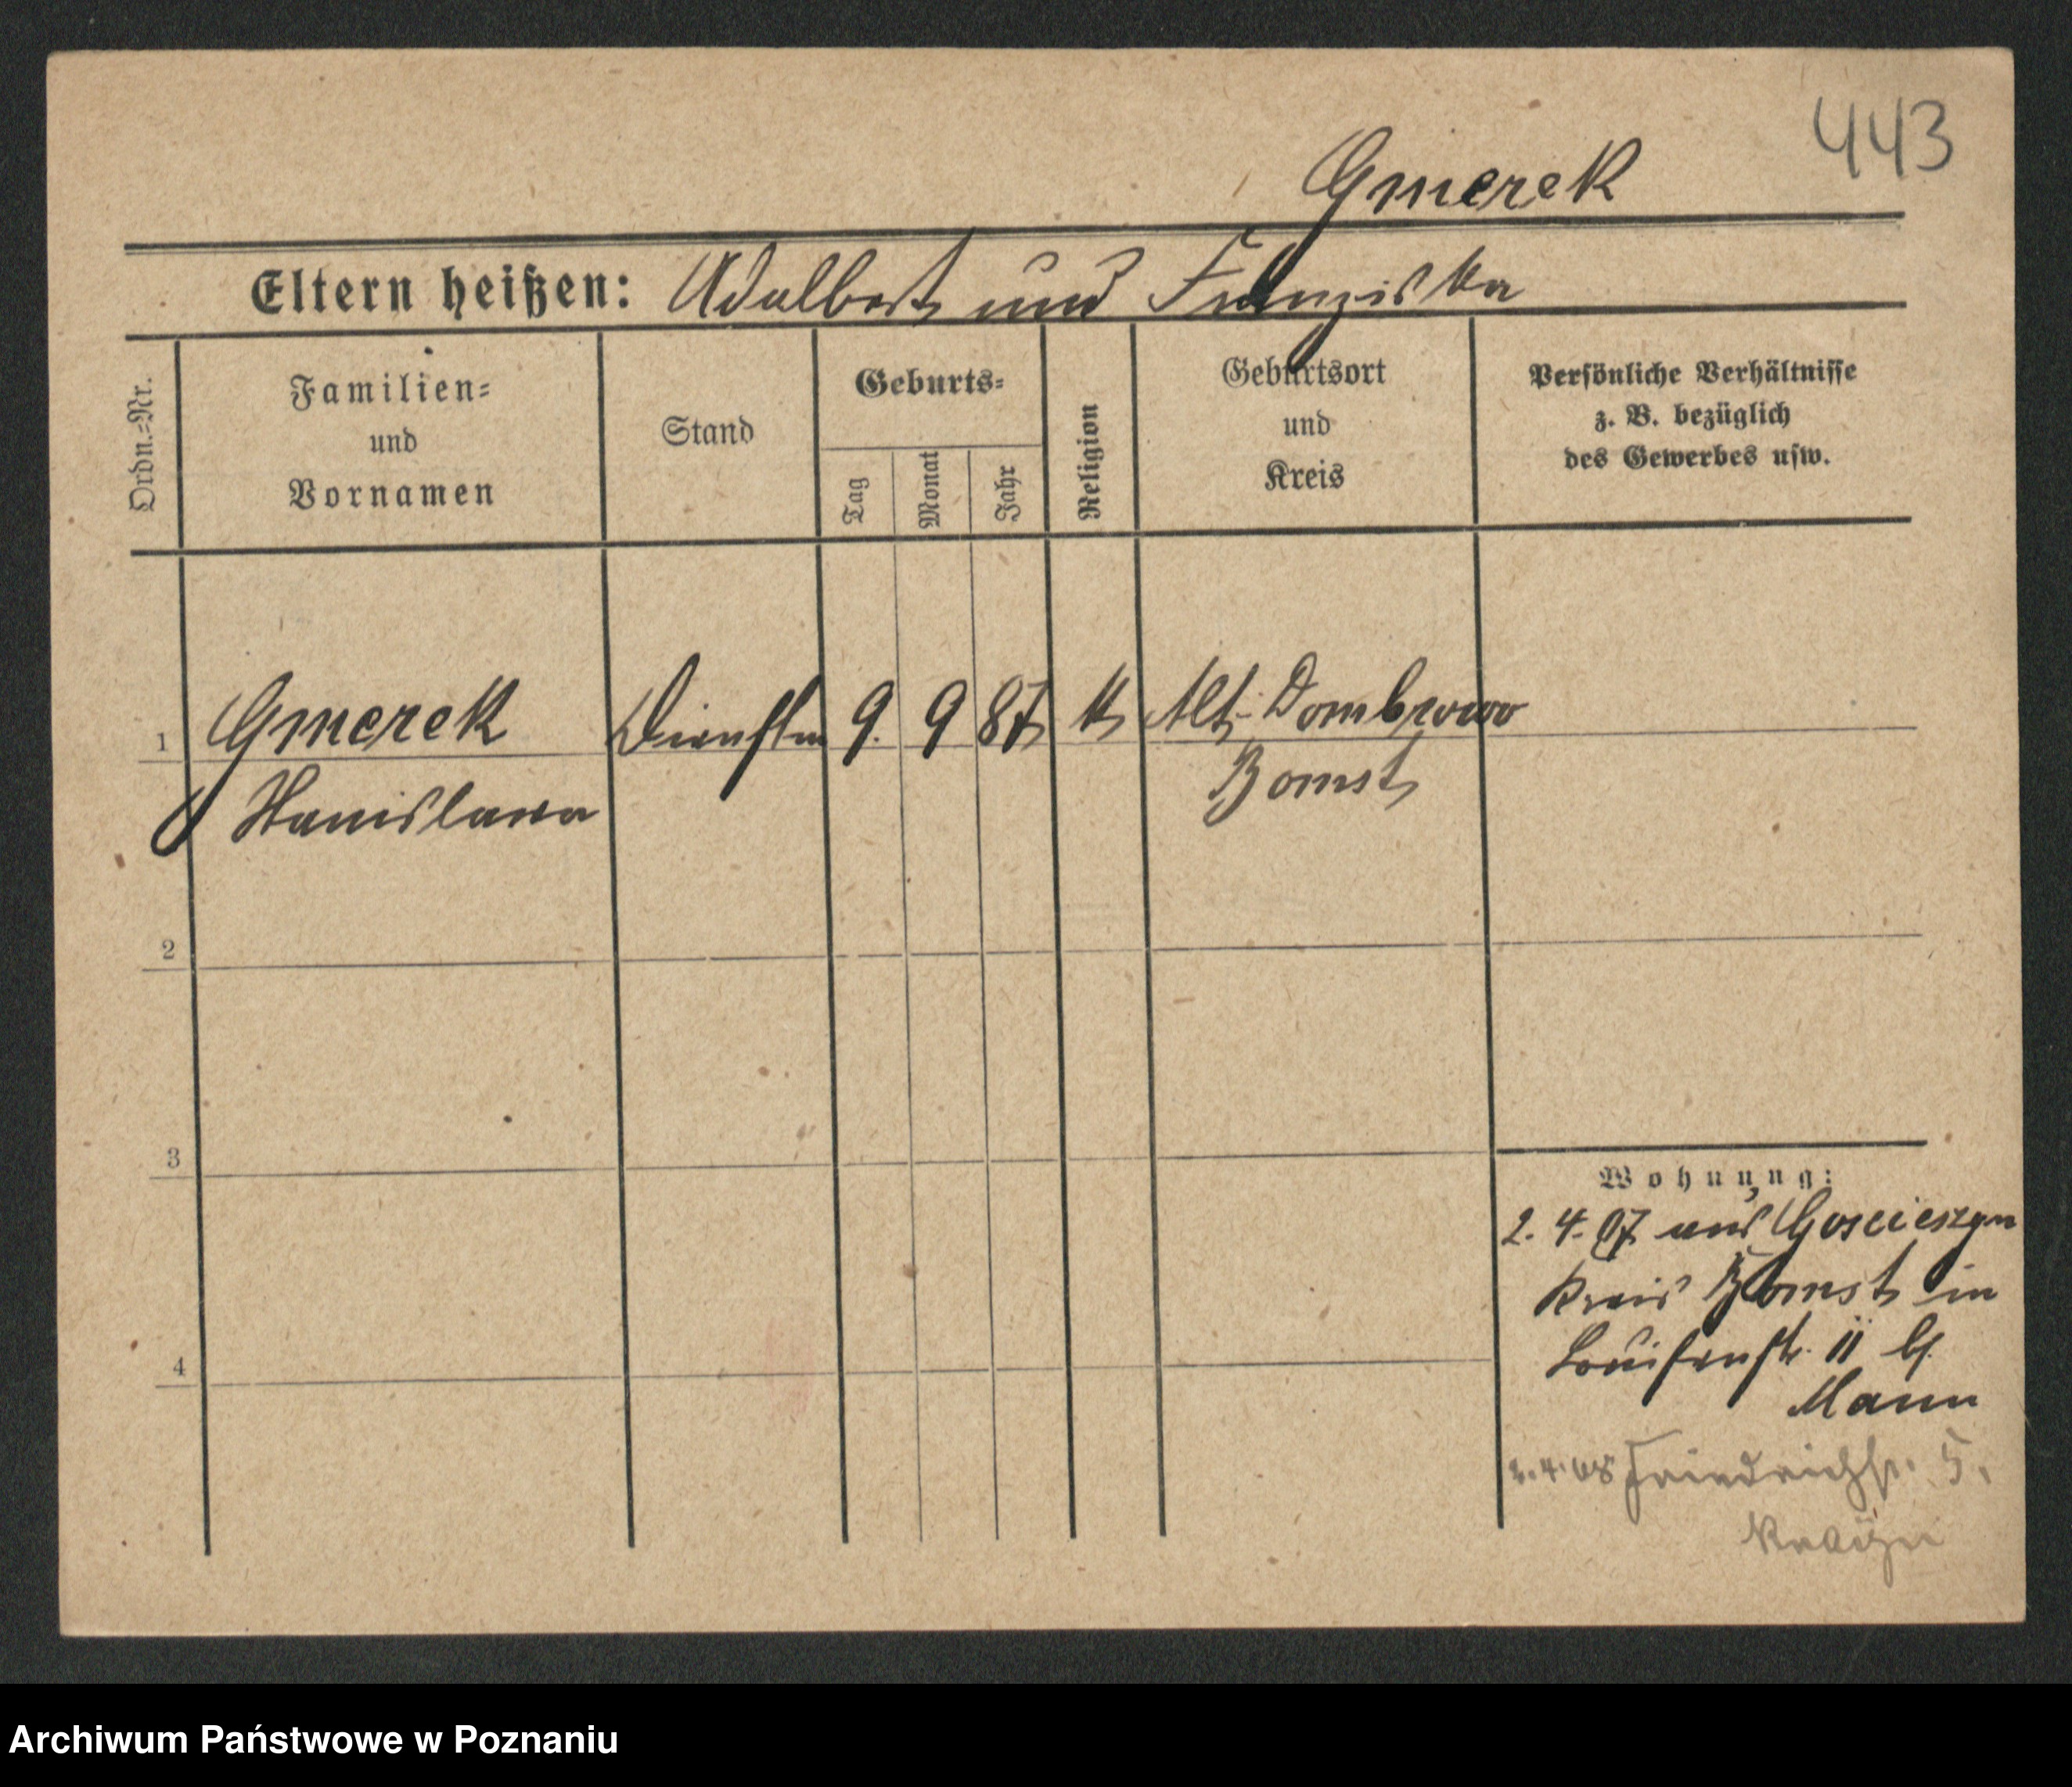 443
Gmerek
Eltern heißen: Adalbert und Franziska
Ordn.=Nr.
Familien=
und
Vornamen
Stand
Geburts=
Tag
Monat
Jahr
Religion
Geburtsort
und
Kreis
Persönliche Verhältnisse
z. B. bezüglich
des Gewerbes usw.
1 Gmerek Dienstm 9. 9 87 k Alt-Dombrowo
Stanislawa Bomst
2
3
4
Wohnung:
2. 4. 07 aus Goscieszyn
Kreis Bomst in
Louisenstr. 11 b/
Mann
2.4.08 Friedrichstr. 5.
Archiwum Państwowe w Poznaniu